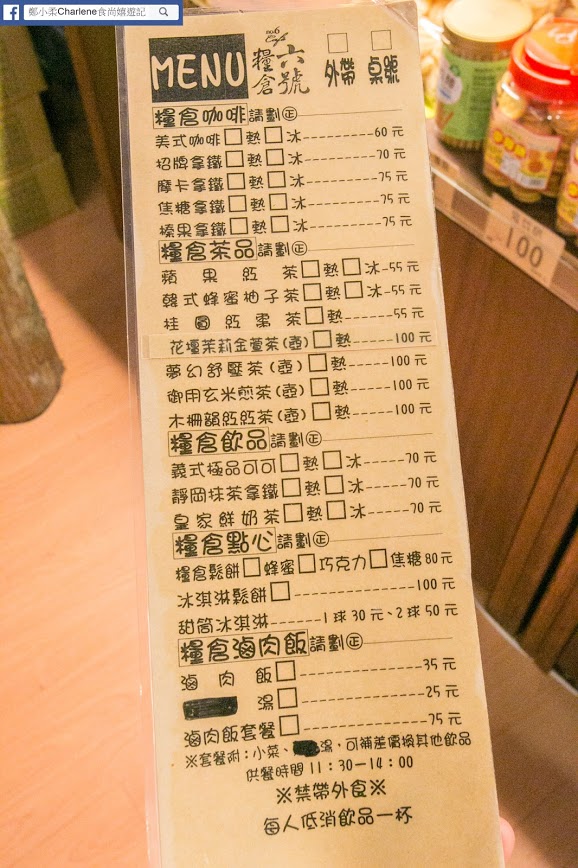 鄭小柔Charlene食尚嬉遊記
MENU
no.6 cafe
六號糧倉
□外帶 □桌號
糧倉咖啡 請劃㊣
美式咖啡□熱□冰---------60元
招牌拿鐵□熱□冰---------70元
摩卡拿鐵□熱□冰---------75元
焦糖拿鐵□熱□冰---------75元
榛果拿鐵□熱□冰---------75元
糧倉茶品 請劃㊣
蘋果紅茶□熱□冰-55元
韓式蜂蜜柚子茶□熱□冰-55元
桂圓紅棗茶□熱------55元
花壇茉莉金萱茶(壺)□熱-----100元
夢幻舒壓茶(壺)□熱-----100元
御用玄米煎茶(壺)□熱-----100元
木柵韻紅茶(壺)□熱-----100元
糧倉飲品 請劃㊣
義式極品可可□熱□冰------70元
靜岡抹茶拿鐵□熱□冰------70元
皇家鮮奶茶□熱□冰------70元
糧倉點心 請劃㊣
糧倉鬆餅□蜂蜜□巧克力□焦糖80元
冰淇淋鬆餅□---------------100元
甜筒冰淇淋------1球30元、2球50元
糧倉滷肉飯 請劃㊣
滷肉飯□---------------35元
湯□---------------25元
滷肉飯套餐□---------------75元
※套餐附：小菜、湯，可補差價換其他飲品
供餐時間11：30-14：00
※禁帶外食※
每人低消飲品一杯
100